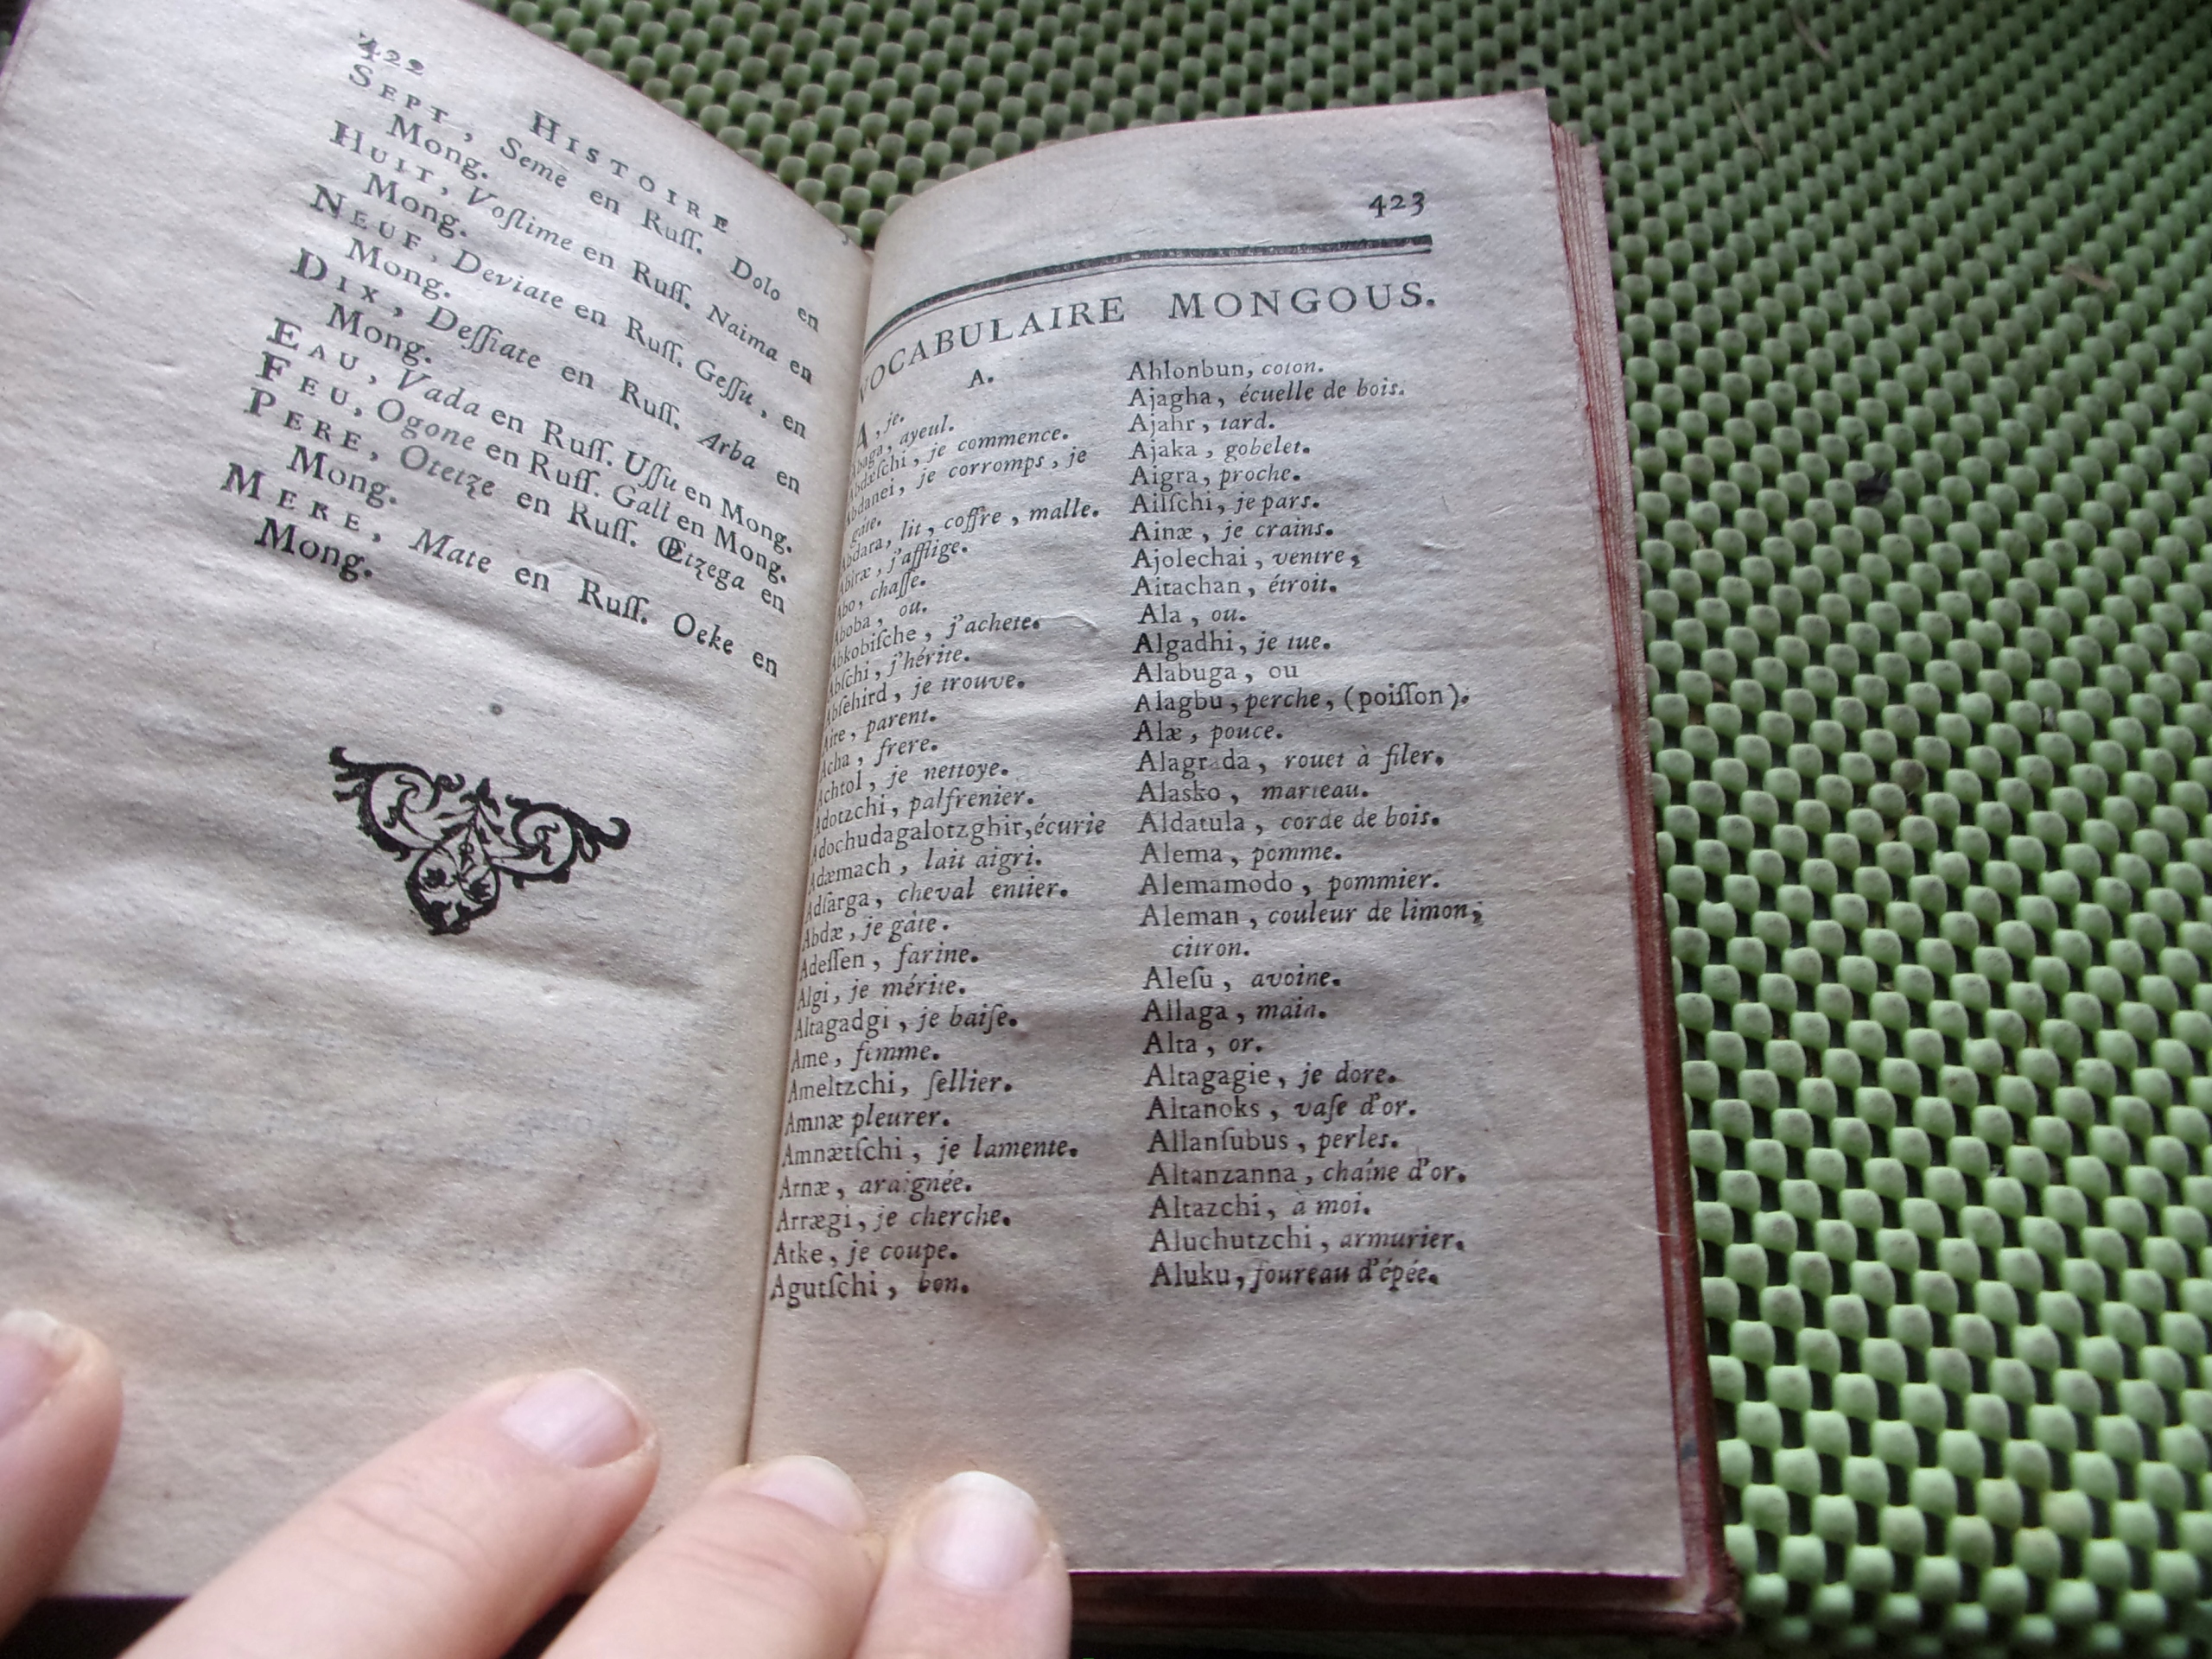 422
HISTOIRE
SEPT, Seme en Ruſſ. Dolo en
Mong.
HUIT, Voſtime en Ruſſ. Naima en
Mong.
NEUF, Deviate en Ruſſ. Geſſu, en
Mong.
DIX, Deſſiate en Ruſſ. Arba en
Mong.
EAU, Vada en Ruſſ. Uſſu en Mong.
FEU, Ogone en Ruſſ. Gali en Mong.
PERE, Otetze en Ruſſ. Œtzega en
Mong.
MERE, Mate en Ruſſ. Oeke en
Mong.
423
VOCABULAIRE MONGOUS.
A.
A, je.
Abaga, ayeul.
Abdæſchi, je commence.
Abdanei, je corromps, je
gâte.
Abdara, lit, coffre, malle.
Abiræ, j'afflige.
Abo, chaſſe.
Aboba, ou.
Abkobiſche, j'achete.
Abſchi, j'hérite.
Abſehird, je trouve.
Aire, parent.
Acha, frere.
Achtol, je nettoye.
Adotzchi, palfrenier.
Adochudagalotzghir, écurie
Adæmach, lait aigri.
Adſarga, cheval entier.
Abdæ, je gâte.
Adeſſen, farine.
Algi, je mérite.
Altagadgi, je baiſe.
Ame, femme.
Ameltzchi, ſellier.
Amnæ pleurer.
Amnætſchi, je lamente.
Arnæ, araignée.
Arrægi, je cherche.
Atke, je coupe.
Agutſchi, bon.
Ahlonbun, coton.
Ajagha, écuelle de bois.
Ajahr, tard.
Ajaka, gobelet.
Aigra, proche.
Ailſchi, je pars.
Ainæ, je crains.
Ajolechai, ventre,
Aitachan, étroit.
Ala, ou.
Algadhi, je tue.
Alabuga, ou
Alagbu, perche, (poiſſon).
Alæ, pouce.
Alagrada, rouet à filer.
Alasko, marteau.
Aldatula, corde de bois.
Alema, pomme.
Alemamodo, pommier.
Aleman, couleur de limon,
citron.
Aleſu, avoine.
Allaga, main.
Alta, or.
Altagagie, je dore.
Altanoks, vaſe d'or.
Allanſubus, perles.
Altanzanna, chaîne d'or.
Altazchi, à moi.
Aluchutzchi, armurier.
Aluku, foureau d'épée.